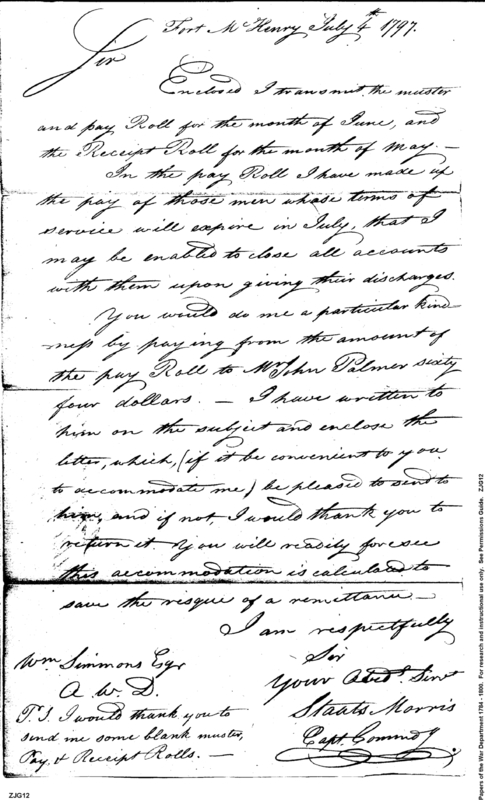 Fort McHenry July 4th 1797.
Sir
Enclosed I transmit the muster
and pay Roll for the month of June, and
the Receipt Roll for the month of May. —
In the pay Roll I have made up
the pay of those men whose terms of
service will expire in July, that I
may be enabled to close all accounts
with them upon giving their discharges.
You would do me a particular kind
ness by paying from the amount of
the pay Roll to Mr John Palmer sixty
four dollars. — I have written to
him on the subject and enclose the
letter, which, (if it be convenient to you
to accommodate me) be pleased to send to
him, and if not, I would thank you to
return it. You will readily foresee
this accommodation is calculated to
save the risque of a remittance —
I am respectfully
Sir
Your Obedt. Servt
Staats Morris
Capt. Commdg
Wm Simmons Esqr
A. W. D.
P.S. I would thank you to
send me some blank muster,
Pay, & Receipt Rolls. —
ZJG12
Papers of the War Department 1784 - 1800. For research and instructional use only. See Permissions Guide. ZJG12